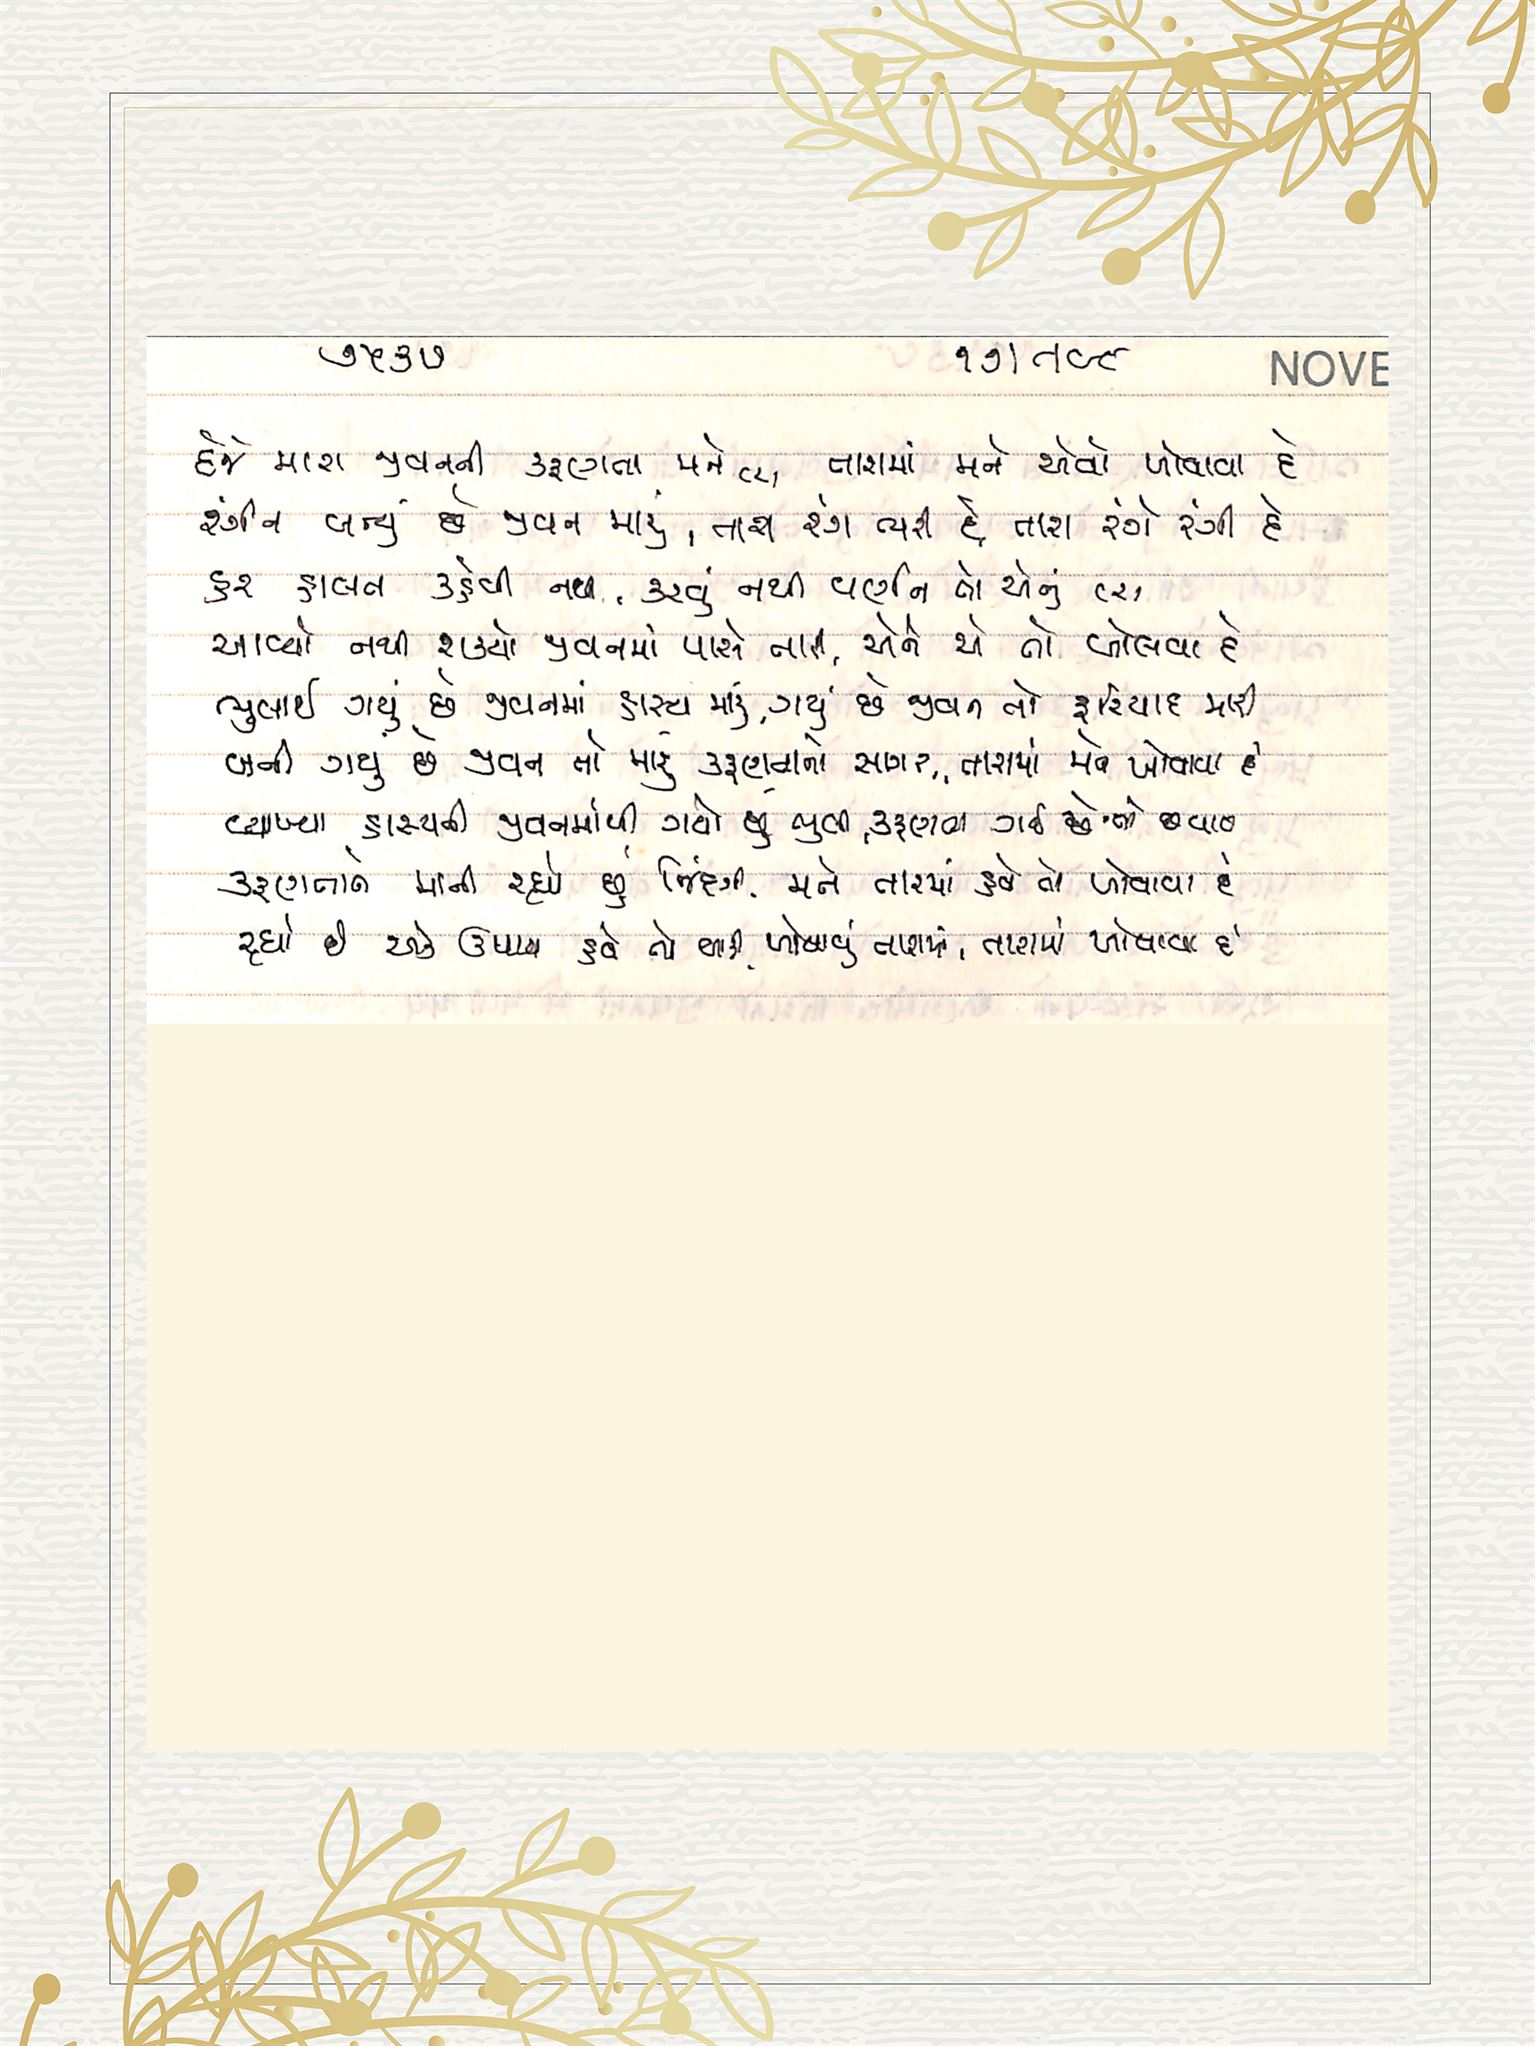 ૭૫૩૭
૧૭। નવ્હ
NOVE
દેજે મારા જીવનની કરૂણતા મને રે, તારામાં મને એવો ખોવાવા દે
રંગીન બન્યું છે જીવન મારું, તારા રંગ ભરી દે, તારા રંગે રંગી દે
હર હાલત કહેવી નથી, કરવું નથી વર્ણન તો એનું રે,
આવ્યો નથી શક્યો જીવનમાં પાસે તારી, એને એ તો બોલવા દે
ભુલાઈ ગયું છે જીવનમાં હાસ્ય મારું, ગયું છે જીવન તો ફરિયાદ મારી
બની ગયું છે જીવન તો મારું કરૂણતાનો સાગર, તારામાં મને ખોવાવા દે
વ્યાખ્યા હાસ્યની જીવનમાંથી ગયો છું ભુલી, કરૂણતા ગઈ છે તો છવાઈ
કરૂણતાને માની રહ્યો છું જિંદગી, મને તારામાં હવે તો ખોવાવા દે
રહ્યો છે એક ઉપાય હવે તો બાકી, ખોવાવું તારામાં, તારામાં ખોવાવા દે